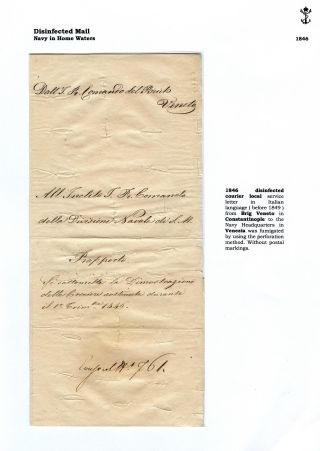 Disinfected Mail
Navy in Home Waters
1846
Dall' I. R. Comando del Brick
Veneto
All' Inclito I. R. Comando
della Divisione Navale di S. M.
Rapporto
Si sottomette la Dimostrazione
delle Crociere sostenute durante
il 1º Trim.
No 761.
1846 disinfected
courier local service
letter in Italian
language ( before 1849 )
from Brig Veneto in
Constantinople to the
Navy Headquarters in
Venezia was fumigated
by using the perforation
method. Without postal
markings.